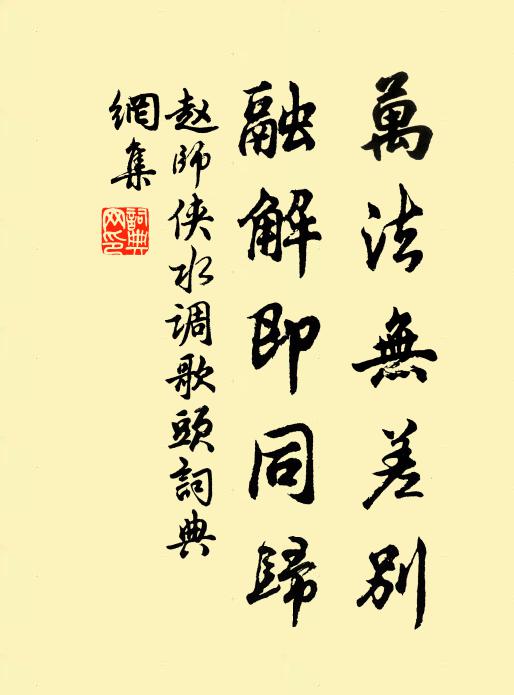 萬法無差別
融解即同歸
赵師俠水调歌頭詞典
網集
詞典
网印